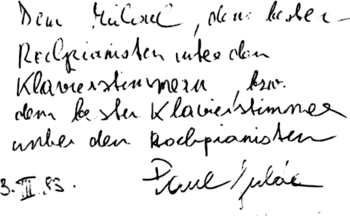 Dem Michael, dem besten
Rockpianisten unter den
Klavierstimmern, bzw.
dem besten Klavierstimmer
unter den Rockpianisten
3. III 93. Paul Gulda